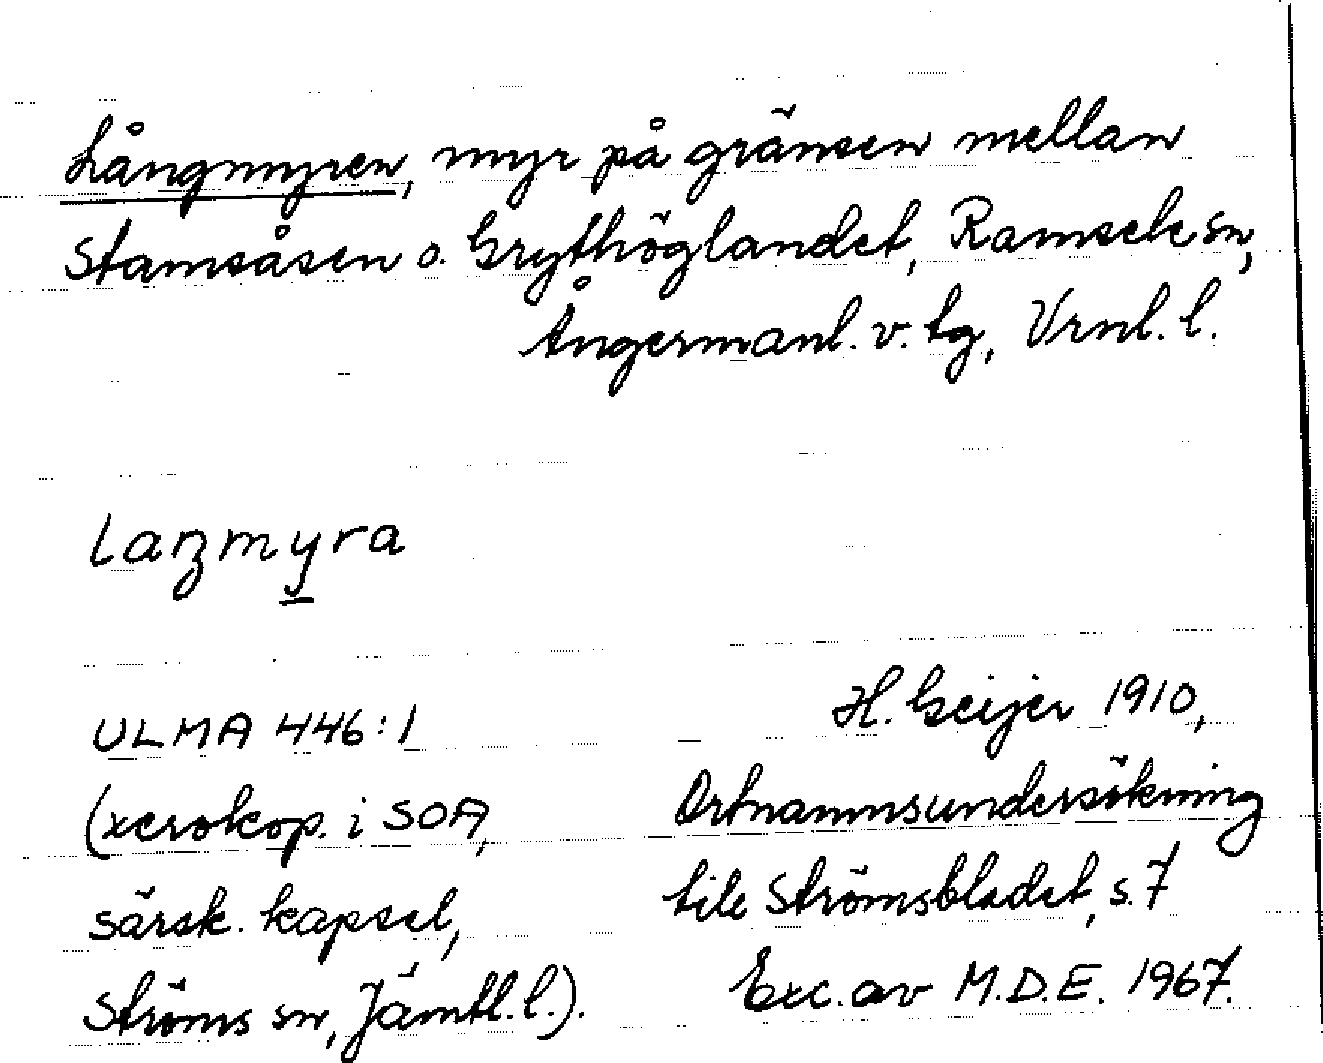 Långmyren, myr på gränsen mellan
Stamsåsen o. Grythöglandet, Ramsele sn,
Ångermanl. v. tg, Vrnl. l.
laŋmyra
ULMA 446:1
(xerokop. i SOA,
särsk. kapsel,
Ströms sn, Jämtl. l.).
H. Geijer 1910,
Ortnamnsundersökning
till Strömsbladet, s. 7
Exc. av M.D.E. 1967.